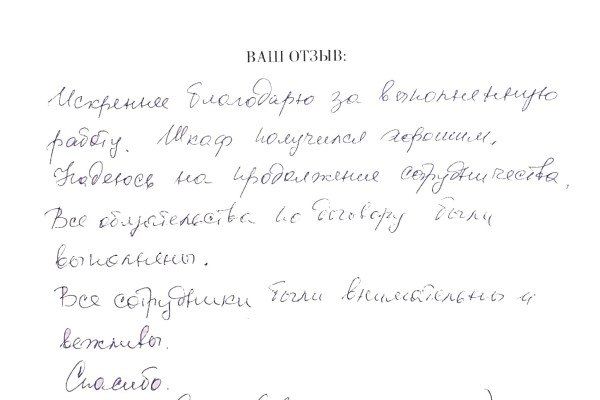 ВАШ ОТЗЫВ:
Искренне благодарю за выполненную
работу. Шкаф получился хорошим.
Надеюсь на продолжение сотрудничества.
Все обязательства по договору были
выполнены.
Все сотрудники были внимательны и
вежливы.
Спасибо.